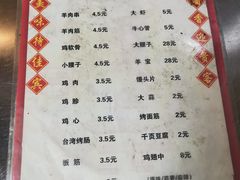 美味待佳宾
酒香迎贵客
羊肉串 4.5元 大虾 5元
羊肉筋 4.5元 牛心管 5元
鸡软骨 4.5元 大腰子 28元
小腰子 4.5元 羊宝 28元
鸡肉 3.5元 馒头片 2元
鸡胗 3.5元 大蒜 2元
鸡心 3.5元 烤面筋 2元
台湾烤肠 3.5元 千页豆腐 2元
板筋 3.5元 鸡翅中 8元